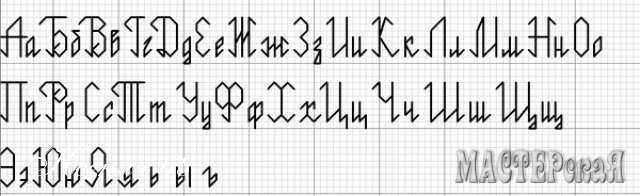 Аа Бб Вв Гг Дд Ее Жж Зз Ии Кк Лл Мм Нн Оо
Пп Рр Сс Тт Уу Фф Хх Цц Чч Шш Щщ
Ээ Юю Яя ь ы ъ
МАСТЕРскаЯ